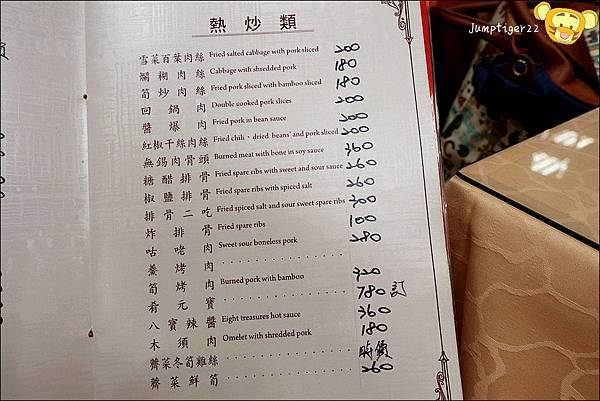 熱炒類
雪菜百葉肉絲 Fried salted cabbage with pork sliced 200
爛糊肉絲 Cabbage with shredded pork 180
筍炒肉絲 Fried pork sliced with bamboo sliced 180
回鍋肉 Double cooked pork slices 200
醬爆肉 Fried pork in bean sauce 200
紅椒干絲肉絲 Fried chili、dried beans' and pork sliced 200
無錫肉骨頭 Burned meat with bone in soy sauce 360
糖醋排骨 Fried spare ribs with sweet and sour sauce 260
椒鹽排骨 Fried spare ribs with spiced salt 260
排骨二吃 Fried spiced salt and sour sweet spare ribs 300
炸排骨 Fried spare ribs 100
咕咾肉 Sweet sour boneless pork 280
烤肉
筍烤肉 Burned pork with bamboo 320
肴元寶 780訂
八寶辣醬 Eight treasures hot sauce 360
木須肉 Omelet with shredded pork 180
薺菜冬筍雞絲 時價
薺菜鮮筍 260
Jumptiger22